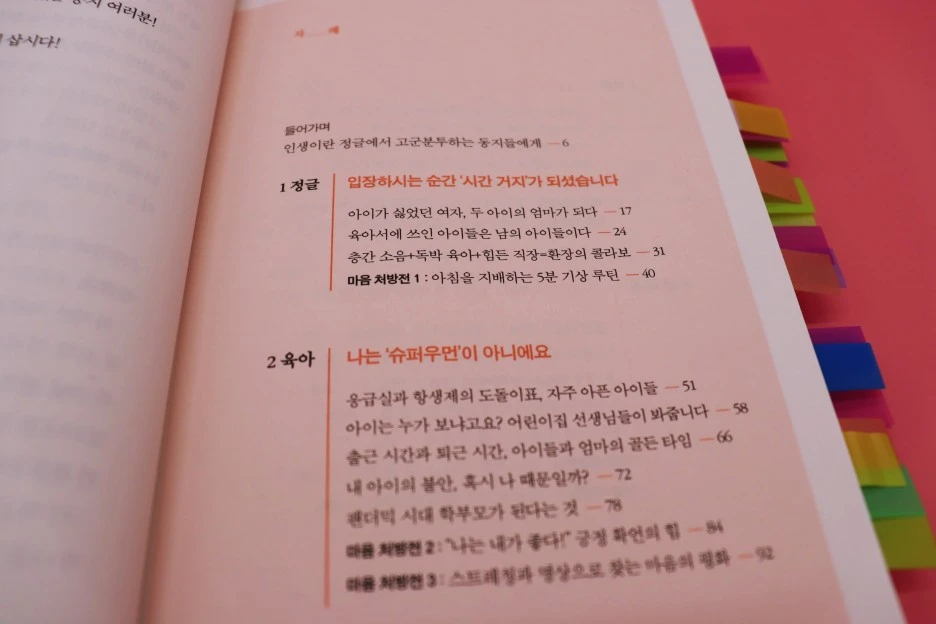 여러분!
삽시다!
차 례
들어가며
인생이란 정글에서 고군분투하는 동지들에게 — 6
1 정글
입장하시는 순간 '시간 거지'가 되셨습니다
아이가 싫었던 여자, 두 아이의 엄마가 되다 — 17
육아서에 쓰인 아이들은 남의 아이들이다 — 24
층간 소음+독박 육아+힘든 직장=환장의 콜라보 — 31
마음 처방전 1 : 아침을 지배하는 5분 기상 루틴 — 40
2 육아
나는 '슈퍼우먼'이 아니에요
응급실과 항생제의 도돌이표, 자주 아픈 아이들 — 51
아이는 누가 보냐고요? 어린이집 선생님들이 봐줍니다 — 58
출근 시간과 퇴근 시간, 아이들과 엄마의 골든 타임 — 66
내 아이의 불안, 혹시 나 때문일까? — 72
팬더믹 시대 학부모가 된다는 것 — 78
마음 처방전 2 : "나는 내가 좋다!" 긍정 확언의 힘 — 84
마음 처방전 3 : 스트레칭과 명상으로 찾는 마음의 평화 — 92